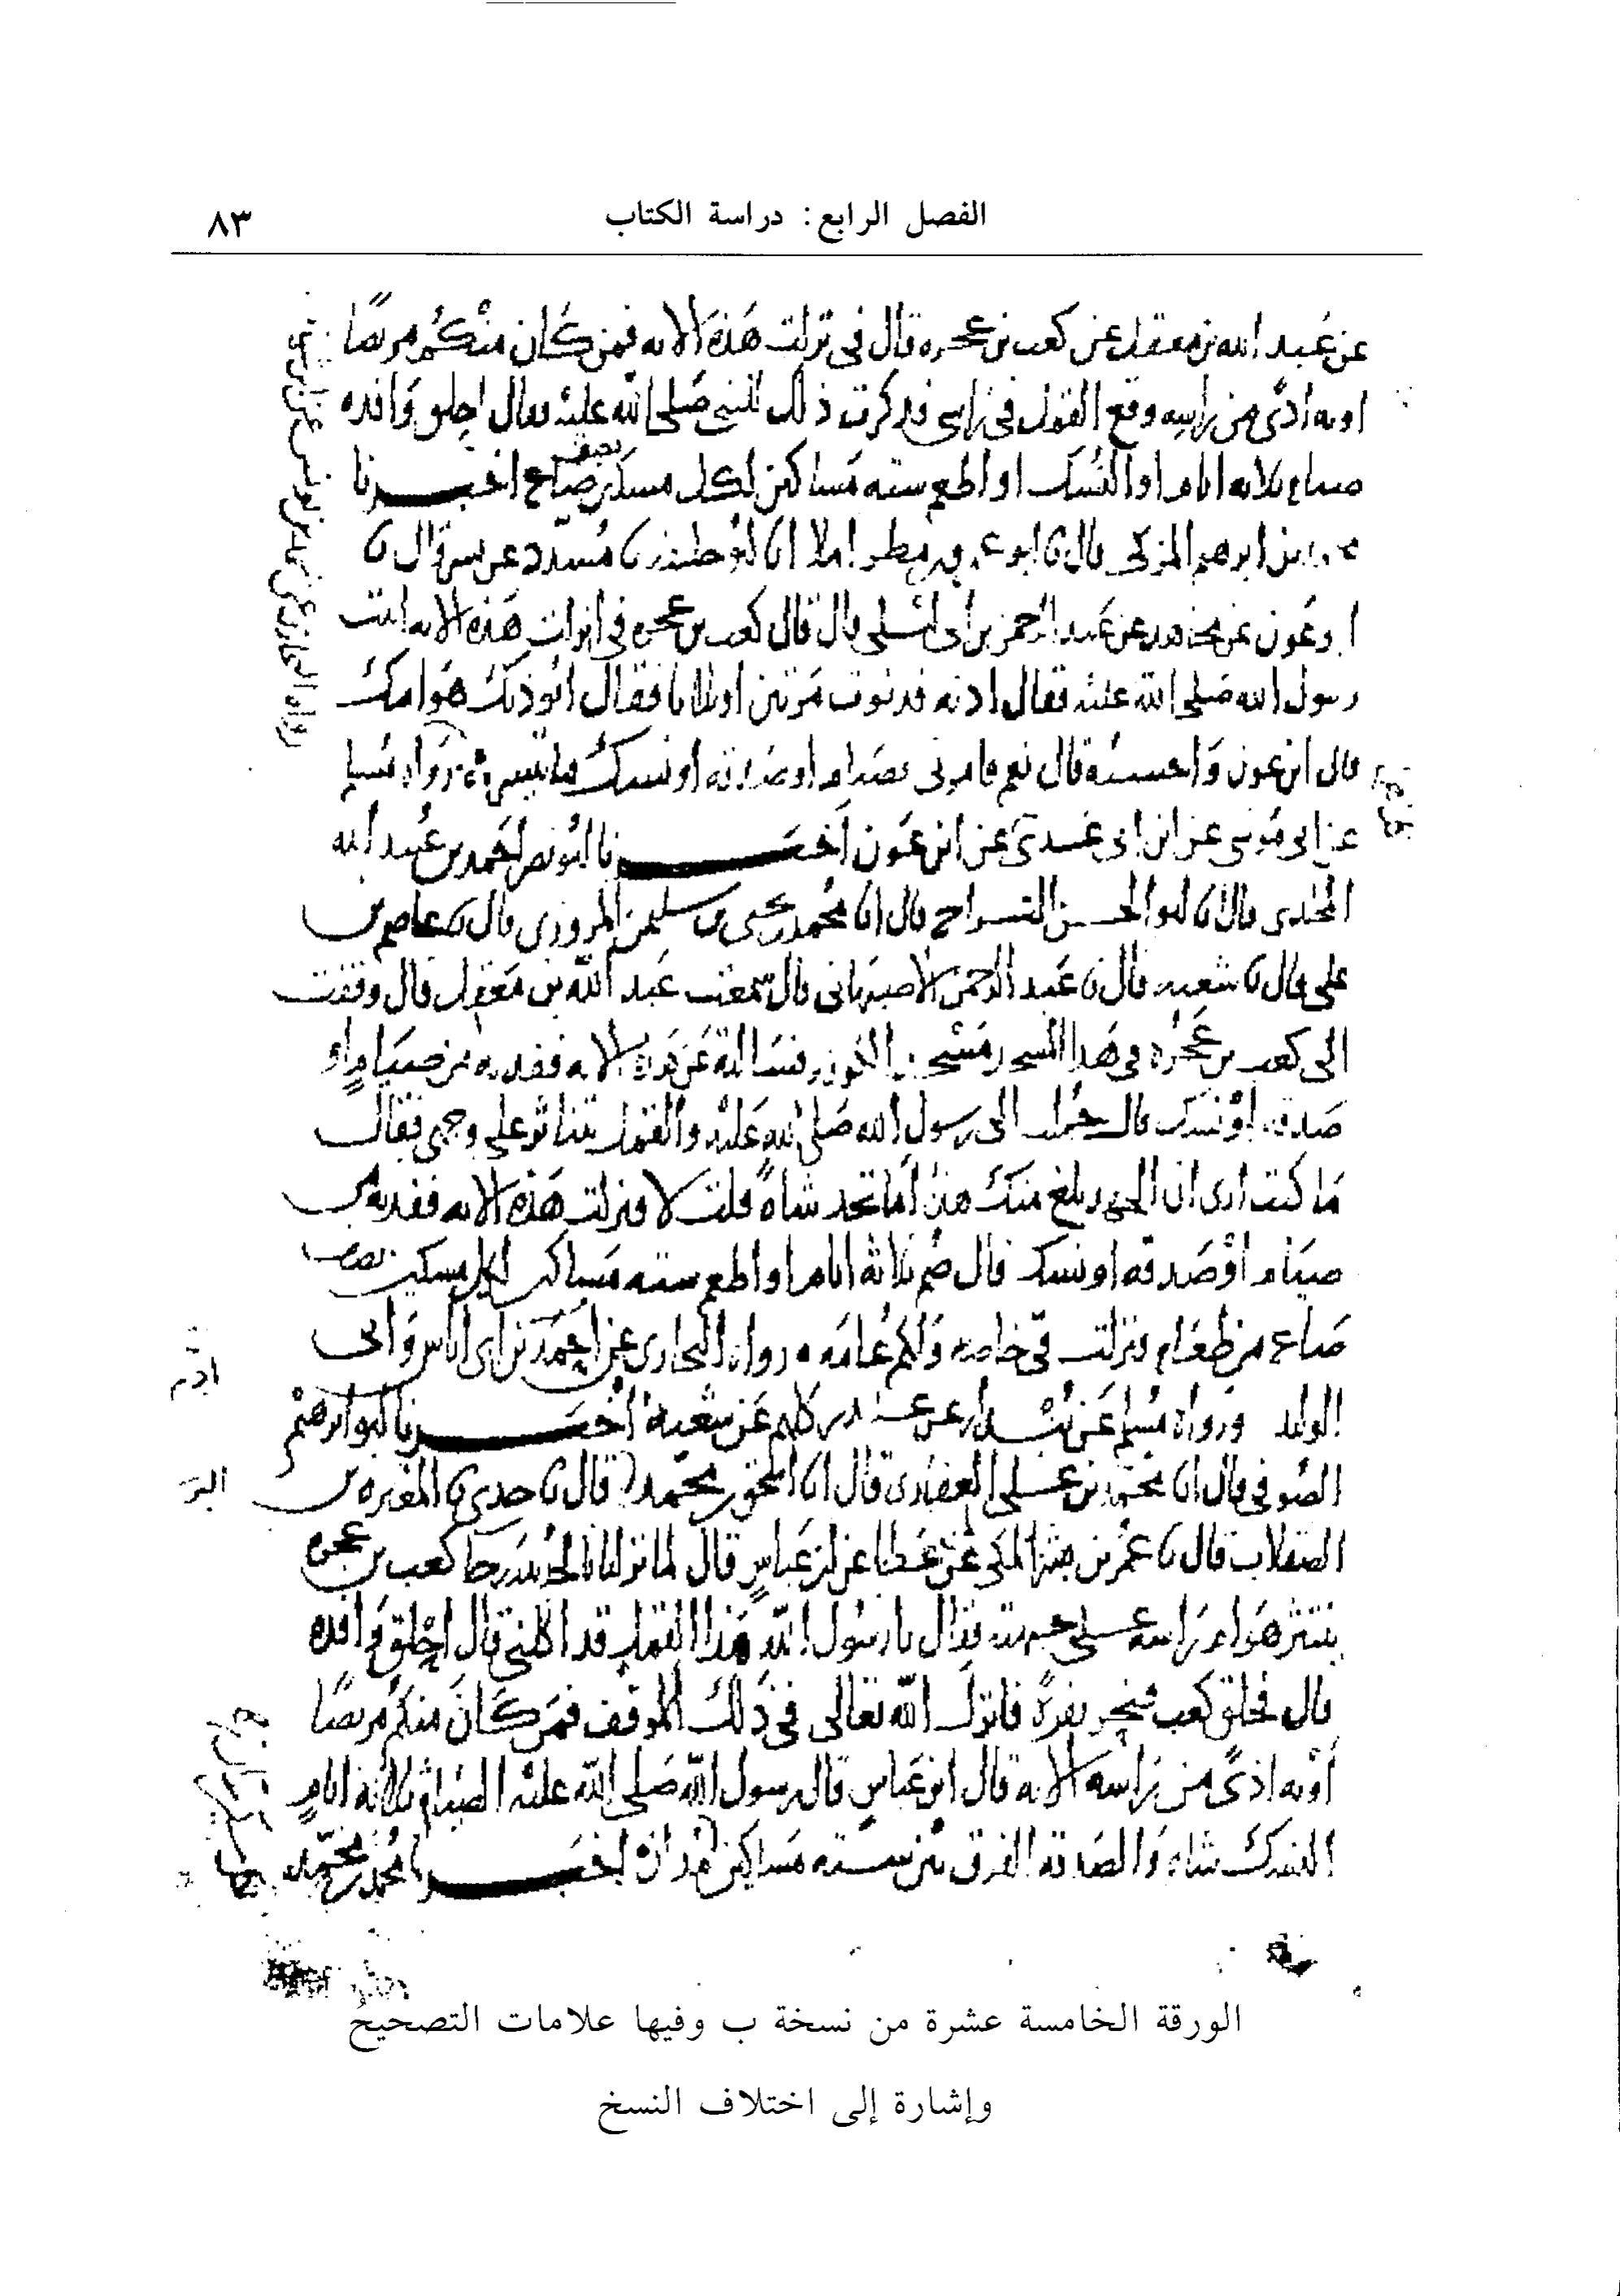 الفصل الرابع: دراسة الكتاب
٨٣
عن عبد الله بن معقل عن كعب بن عجرة قال في نزلت هذه الاية فمن كان منكم مريضا
او به اذى من راسه وقع القمل في راسي فذكرت ذلك للنبي صلى الله عليه فقال احلق وافده
صيام ثلاثة ايام او النسك او اطعم ستة مساكين لكل مسكين صاع اخبرنا
بن ابرهيم المزكي قال ابو عمرو بن مطر املا انا ابو خليفة مسدد عن بشر قال
ابن عون عن مجاهد عن عبد الرحمن بن ابي ليلى قال قال كعب بن عجرة في انزلت هذه الاية اتيت
رسول الله صلى الله عليه فقال ادنه فدنوت مرتين او ثلاثا فقال ايوذيك هوامك
قال ابن عون واحسبه قال نعم فامرني بصيام او صدقة او نسك ما تيسر رواه مسلم
عن ابي موسى عن ابن ابي عدي عن ابن عون اخبرنا ابو نصر احمد بن عبيد الله
المخلدي قال انا ابو الحسن السراج قال انا محمد بن يحيى بن سليمن المروزي قال عاصم بن
علي قال شعبة قال عبد الرحمن الاصبهاني قال سمعت عبد الله بن معقل قال وقفت
الى كعب بن عجرة في هذا المسجد مسجد الكوفة فسالته عن هذه الاية ففدية من صيام او
صدقة او نسك قال حملت الى رسول الله صلى الله عليه والقمل يتناثر على وجهي فقال
ما كنت ارى ان الجهد بلغ منك هذا اما تجد شاة قلت لا فنزلت هذه الاية ففدية من
صيام او صدقة او نسك قال صم ثلاثة ايام او اطعم ستة مساكين لكل مسكين نصف
صاع من طعام فنزلت في خاصة ولكم عامة رواه البخاري عن احمد بن ابي اياس وابي
الوليد ورواه مسلم عن بندار عن غندر كلهم عن شعبة اخبرنا ابو ابرهيم
ادم
الصوفي قال انا محمد بن علي الغفاري قال انا اسحق بن محمد قال جدي المغيرة بن
الصقلاب قال عمر بن بشر المكي عن عطا عن ابن عباس قال لما نزلنا الحديبية جا كعب بن عجرة
ينتثر هوام راسه على جبهته فقال يا رسول الله هذا القمل قد اكلني قال احلق وافده
قال فحلق كعب فنحر بقرة فانزل الله تعالى في ذلك الموقف فمن كان منكم مريضا
او به اذى من راسه الاية قال ابن عباس قال رسول الله صلى الله عليه الصيام ثلاثة ايام
النسك شاة والصدقة الفرق بين ستة مساكين مدان اخبرنا محمد بن محمد
الورقة الخامسة عشرة من نسخة ب وفيها علامات التصحيح
وإشارة إلى اختلاف النسخ